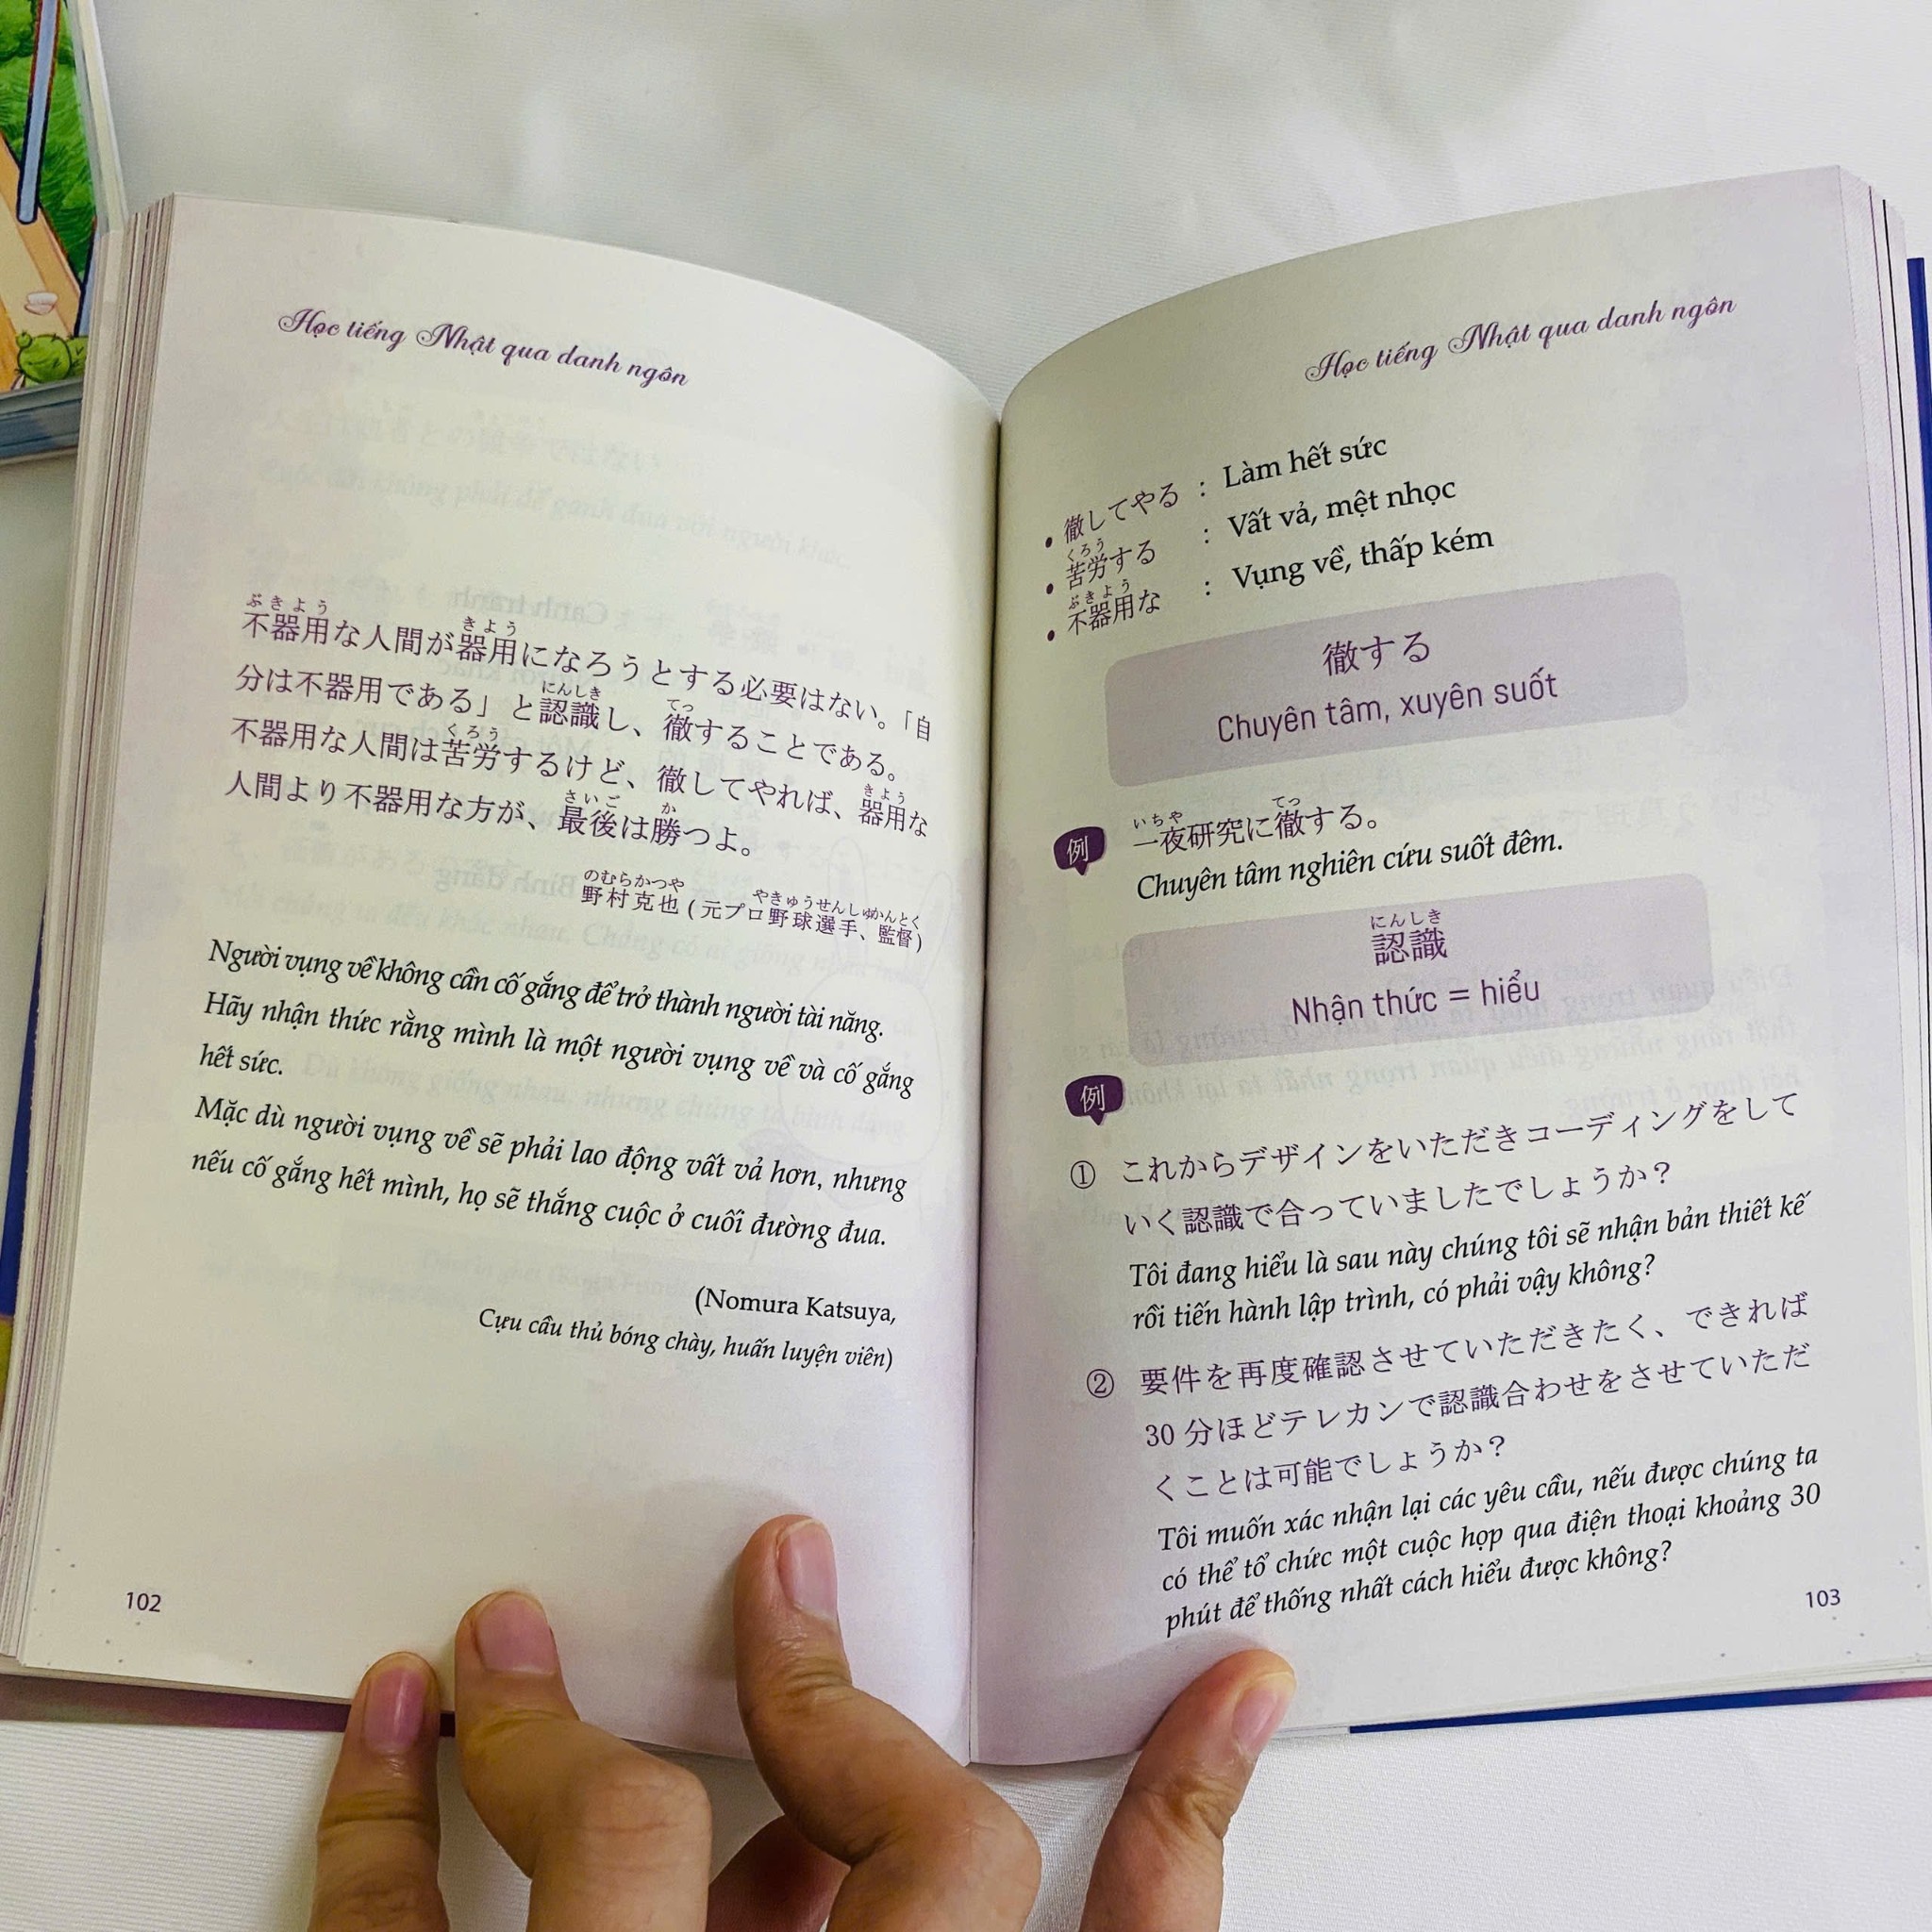 Học tiếng Nhật qua danh ngôn
不器用な人間が器用になろうとする必要はない。「自
分は不器用である」と認識し、徹することである。
不器用な人間は苦労するけど、徹してやれば、器用な
人間より不器用な方が、最後は勝つよ。
野村克也 (元プロ野球選手、監督)
Người vụng về không cần cố gắng để trở thành người tài năng.
Hãy nhận thức rằng mình là một người vụng về và cố gắng
hết sức.
Mặc dù người vụng về sẽ phải lao động vất vả hơn, nhưng
nếu cố gắng hết mình, họ sẽ thắng cuộc ở cuối đường đua.
(Nomura Katsuya,
Cựu cầu thủ bóng chày, huấn luyện viên)
102
Học tiếng Nhật qua danh ngôn
• 徹してやる : Làm hết sức
• 苦労する : Vất vả, mệt nhọc
• 不器用な : Vụng về, thấp kém
徹する
Chuyên tâm, xuyên suốt
例 一夜研究に徹する。
Chuyên tâm nghiên cứu suốt đêm.
認識
Nhận thức = hiểu
例
① これからデザインをいただきコーディングをして
いく認識で合っていましたでしょうか？
Tôi đang hiểu là sau này chúng tôi sẽ nhận bản thiết kế
rồi tiến hành lập trình, có phải vậy không?
② 要件を再度確認させていただきたく、できれば
30 分ほどテレカンで認識合わせをさせていただ
くことは可能でしょうか？
Tôi muốn xác nhận lại các yêu cầu, nếu được chúng ta
có thể tổ chức một cuộc họp qua điện thoại khoảng 30
phút để thống nhất cách hiểu được không?
103